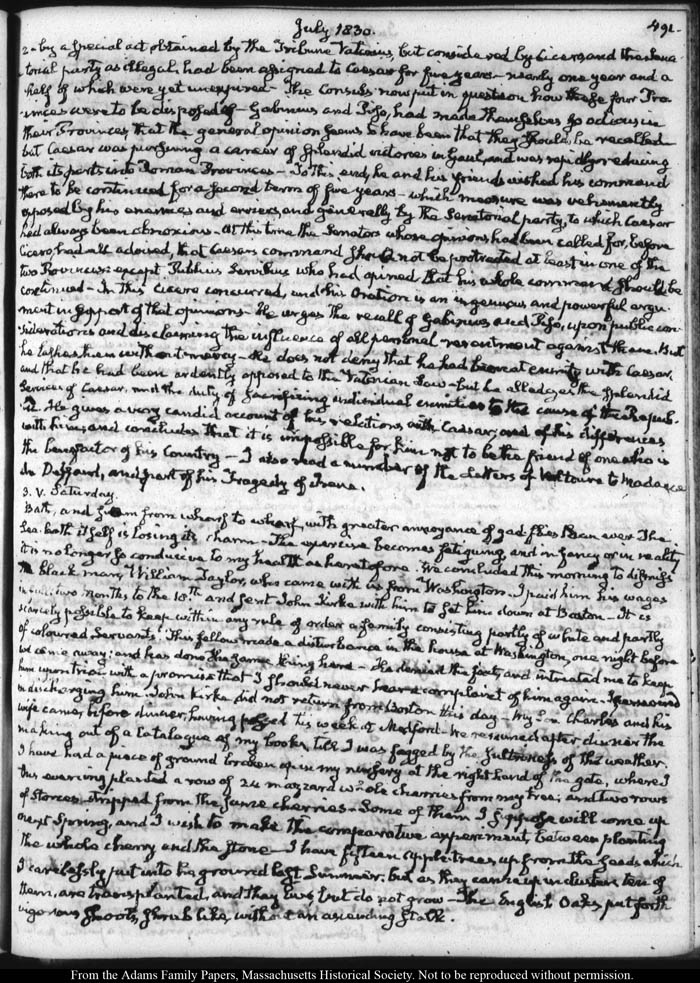 July 1830.
491.
2 - by a special act obtained by the Tribune Vatinius, but considered by Cicero and the Sena-
torial party as illegal, had been assigned to Caesar for five years - nearly one year and a
half of which were yet unexpired - The Consuls now put in question how these four Pro-
vinces were to be disposed of - Gabinius and Piso, had made themselves so odious in
their Provinces, that the general opinion seems to have been that they should be recalled
but Caesar was pursuing a career of splendid victories in Gaul, and was rapidly reducing
both its parts into Roman Provinces - To this end, he and his friends wished his command
there to be continued for a second term of five years - which measure was vehemently
opposed by his enemies and enviers, and generally by the Senatorial party, to which Caesar
had always been obnoxious - At this time the Senators whose opinions had been called for, before
Cicero, had all advised, that Caesars command should not be protracted at least in one of the
two Provinces: except Publius Servilius who had opined that his whole command should be
continued - In this Cicero concurred, and his Oration is an ingenious and powerful argu-
ment in support of that opinion - He urges the recall of Gabinius and Piso, upon public con-
siderations and disclaiming the influence of all personal resentment against them. But
he lashes them without mercy - He does not deny that he had been at enmity with Caesar,
and that he had been ardently opposed to the Vatinian Law - but he alledges the splendid
Services of Caesar, and the duty of sacrificing individual enmities to the cause of the Repub-
lic. He gives a very candid account of his relations with Caesar, and of his differences
with him; and concludes that it is impossible for him not to be the friend of one who is
the benefactor of his Country - I also read a number of the Letters of Voltaire to Madame
du Deffand, and part of his Tragedy of Irene.
3. V. Saturday.
Bath, and swam from wharf to wharf, with greater annoyance of gad flies than ever. The
Sea-bath itself is losing its charm - The exercise becomes fatiguing, and in fancy or in reality
it is no longer so conducive to my health as heretofore. We concluded this morning to dismiss
the black man, William Taylor, who came with us from Washington. I paid him his wages
in full two months to the 10th. and sent John Kirke with him to set him down at Boston - It is
scarcely possible to keep within any rule of order a family consisting partly of white and partly
of coloured Servants. This fellow made a disturbance in the house at Washington, one night before
we came away; and has done the same thing here - He denied the fact, and intreated me to keep
him upon trial with a promise that I should never hear a complaint of him again. I persevered
in discharging him. John Kirke did not return from Boston this day - My Son Charles and his
wife came, before dinner, having passed this week at Medford - We resumed after dinner the
making out of a Catalogue of my books, till I was fagged by the sultriness of the weather.
I have had a piece of ground broken up in my nursery at the right hand of the gate, where I
this evening planted a row of 24 mazzard whole cherries from my tree; and two rows
of Stones stripped from the same cherries - Some of them I suppose will come up
next Spring, and I wish to make the comparative experiment, between planting
the whole cherry and the Stone - I have fifteen apple-trees, up from the seeds which
I carelessly put into the ground last Summer, but as they came up in clusters, ten of
them, are transplanted, and they live but do not grow - The English Oaks put forth
vigorous shoots, shrub like, without an ascending stalk.
From the Adams Family Papers, Massachusetts Historical Society. Not to be reproduced without permission.